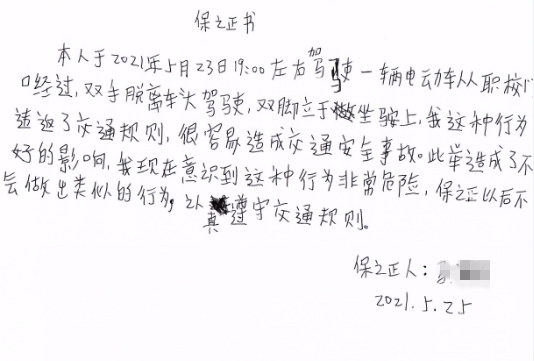 保之正书
本人于2021年5月23日19:00左右驾驶一辆电动车从职校门
口经过，双手脱离车头驾驶，双脚立于坐鞍上，我这种行为
违返了交通规则，很容易造成交通安全事故。此举造成了不
好的影响，我现在意识到这种行为非常危险，保之正以后不
会做出类似的行为，认真遵守交通规则。
保之正人：
2021.5.25